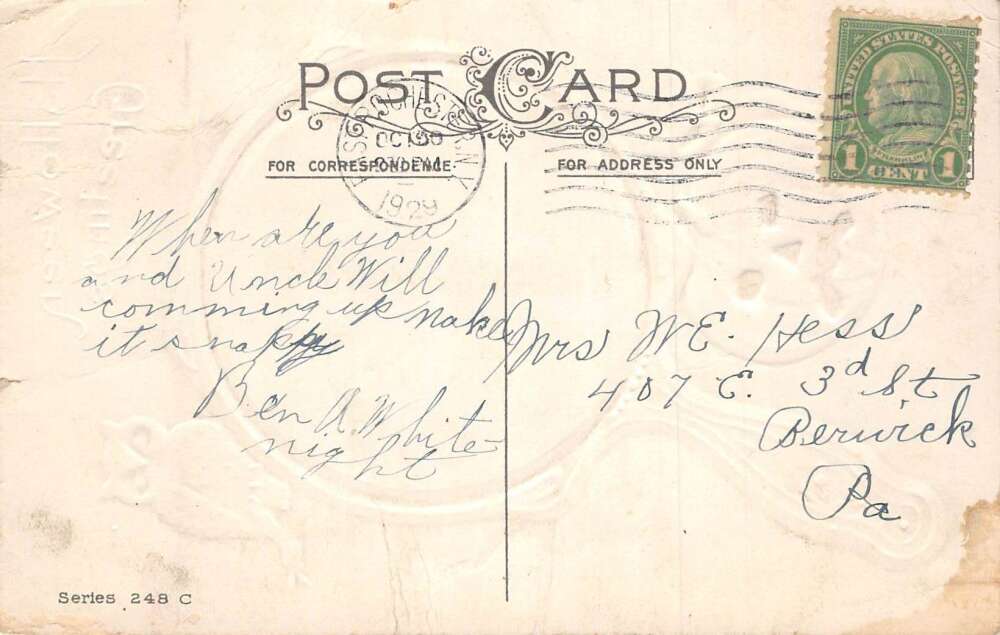 POST CARD
FOR CORRESPONDENCE.
FOR ADDRESS ONLY
OCT 30
1929
UNITED STATES POSTAGE
FRANKLIN
1 CENT 1
When are you
and Uncle Will
comming up make
it snappy
Ben A. White
night
Mrs W E. Hess
407 E. 3d St.
Berwick
Pa
Series 248 C